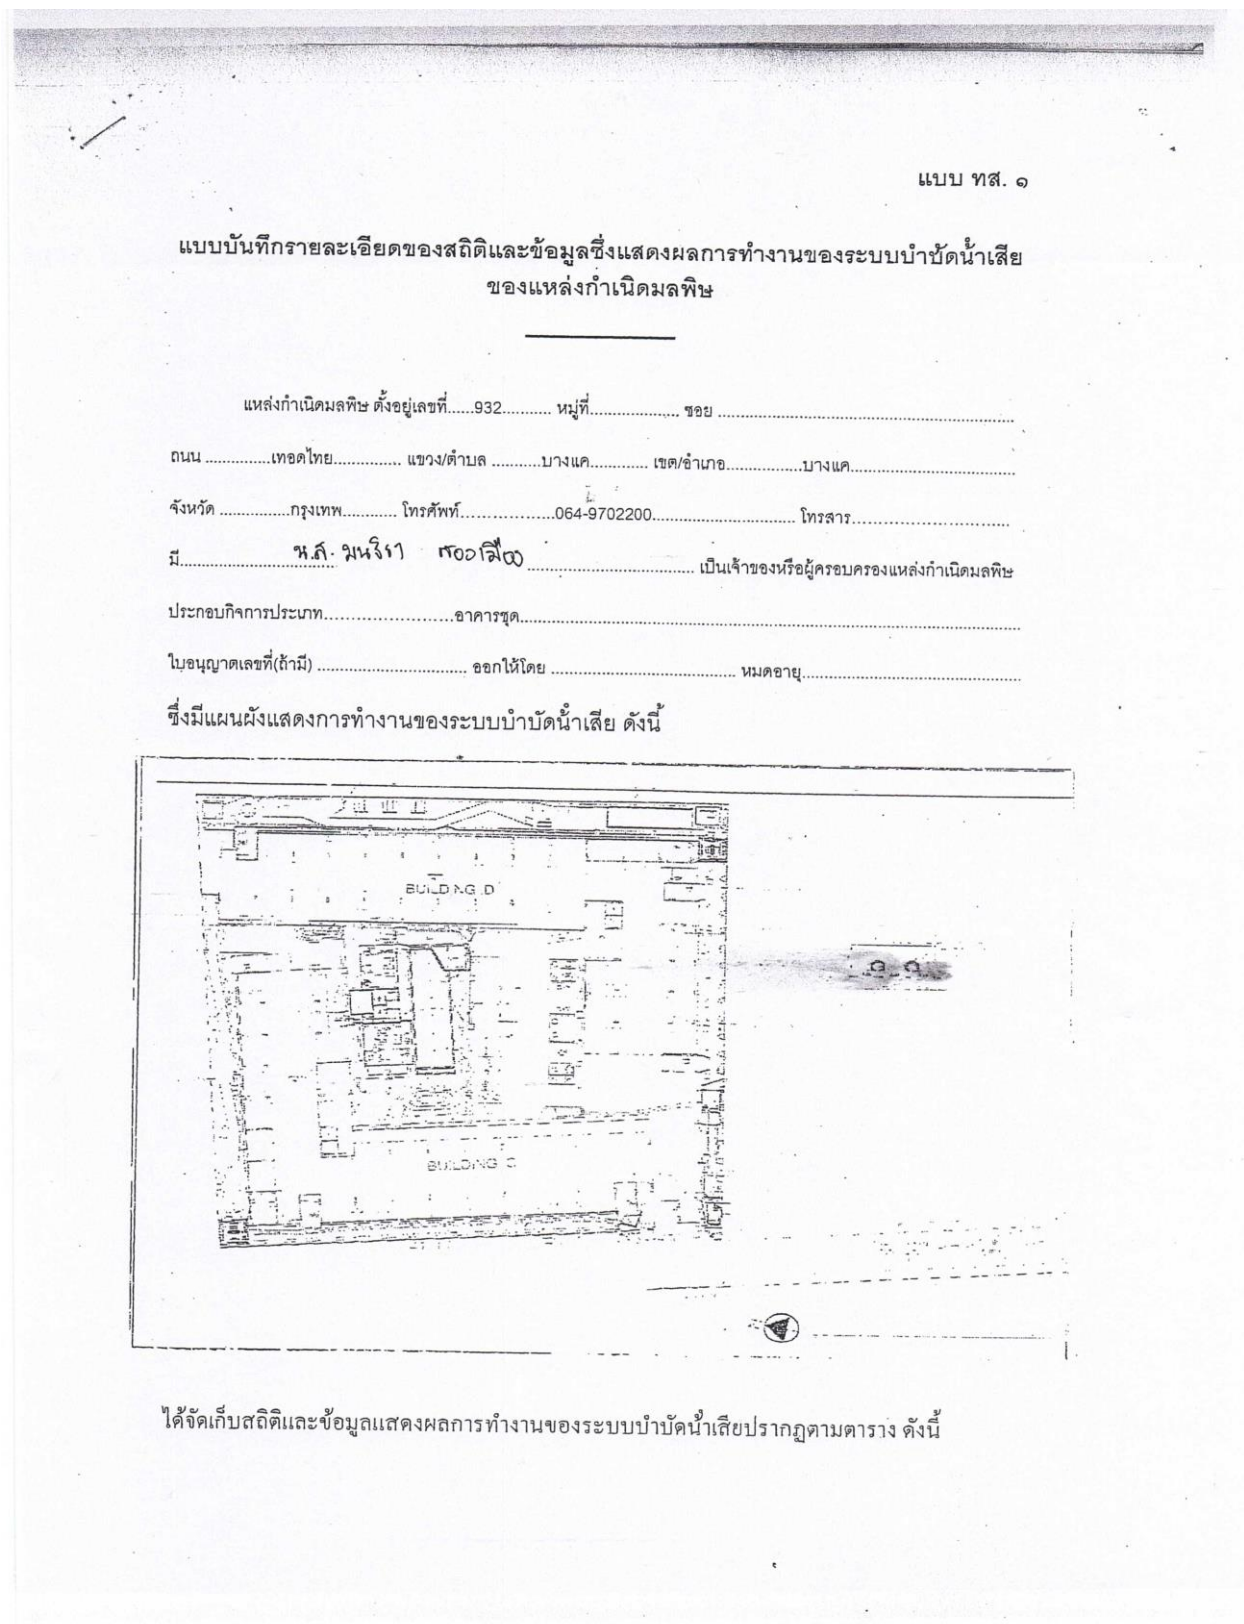 แบบ ทส. ๑
แบบบันทึกรายละเอียดของสถิติและข้อมูลซึ่งแสดงผลการทำงานของระบบบำบัดน้ำเสีย
ของแหล่งกำเนิดมลพิษ
แหล่งกำเนิดมลพิษ ตั้งอยู่เลขที่......932........... หมู่ที่.................... ซอย ..................................................................
ถนน ..............เทอดไทย............... แขวง/ตำบล ...........บางแค............. เขต/อำเภอ.................บางแค.....................................
จังหวัด ................กรุงเทพ............ โทรศัพท์.....................064-9702200................................ โทรสาร...................................
มี.................................. น.ส. ..................................... เป็นเจ้าของหรือผู้ครอบครองแหล่งกำเนิดมลพิษ
ประกอบกิจการประเภท.........................อาคารชุด..............................................................................................................
ใบอนุญาตเลขที่(ถ้ามี) ................................. ออกให้โดย ......................................... หมดอายุ................................................
ซึ่งมีแผนผังแสดงการทำงานของระบบบำบัดน้ำเสีย ดังนี้
BUILDING D
BUILDING C
ได้จัดเก็บสถิติและข้อมูลแสดงผลการทำงานของระบบบำบัดน้ำเสียปรากฏตามตาราง ดังนี้